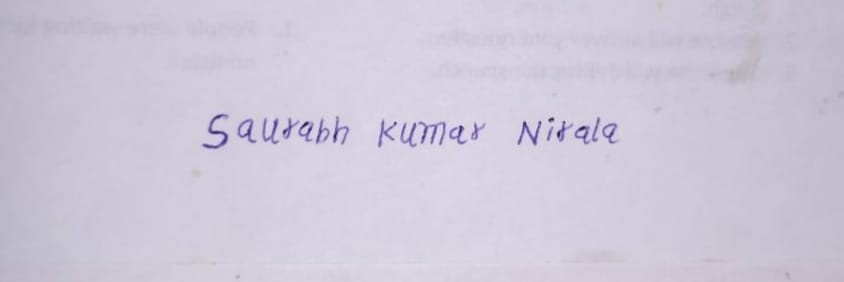 Saurabh Kumar Nirala